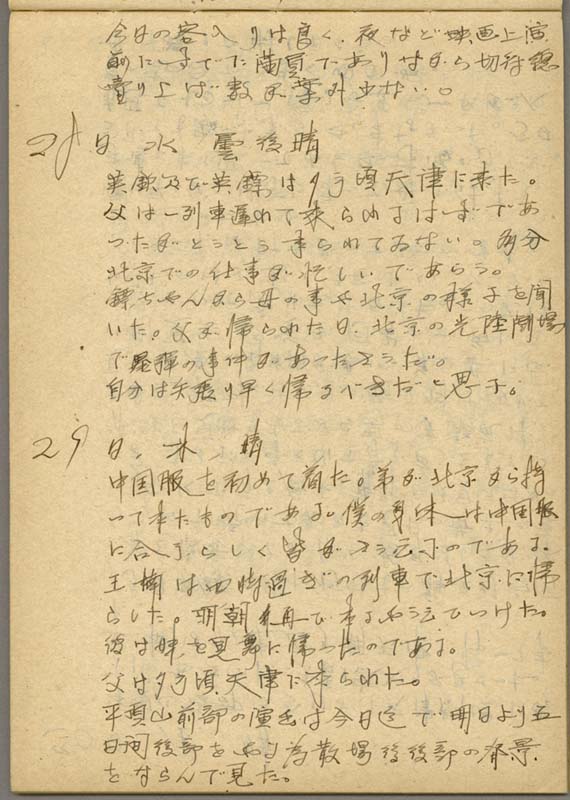 今日の客入りは良く、夜など映画上演
前にすでに満員でありながら切符總
賣り上げ数は案外少ない。
28日 水 曇後晴
英欽及び英鐸は夕方頃天津に来た。
父は一列車遅れて来られるはずであ
つたがとうとう来られてゐない。多分
北京での仕事が忙しいであらう。
鐸ちやんから母の事や北京の様子を聞
いた。父が帰られた日、北京の光陸劇場
で爆弾の事件があつたさうだ。
自分は矢張り早く帰るべきだと思ふ。
29日、木 晴
中国服を初めて着た。弟が北京から持
つて来たものである。僕の身体は中国服
に合ふらしく皆がさう云ふのである。
王楠は四時過ぎの列車で北京に帰
らした。明朝再で来るやう云ひつけた。
彼は妹を見舞に帰つたのである。
父は夕方頃天津に来られた。
平頂山前部の演出は今日迄で明日より五
日間後部をやる為散場後後部の背景
をならんで見た。